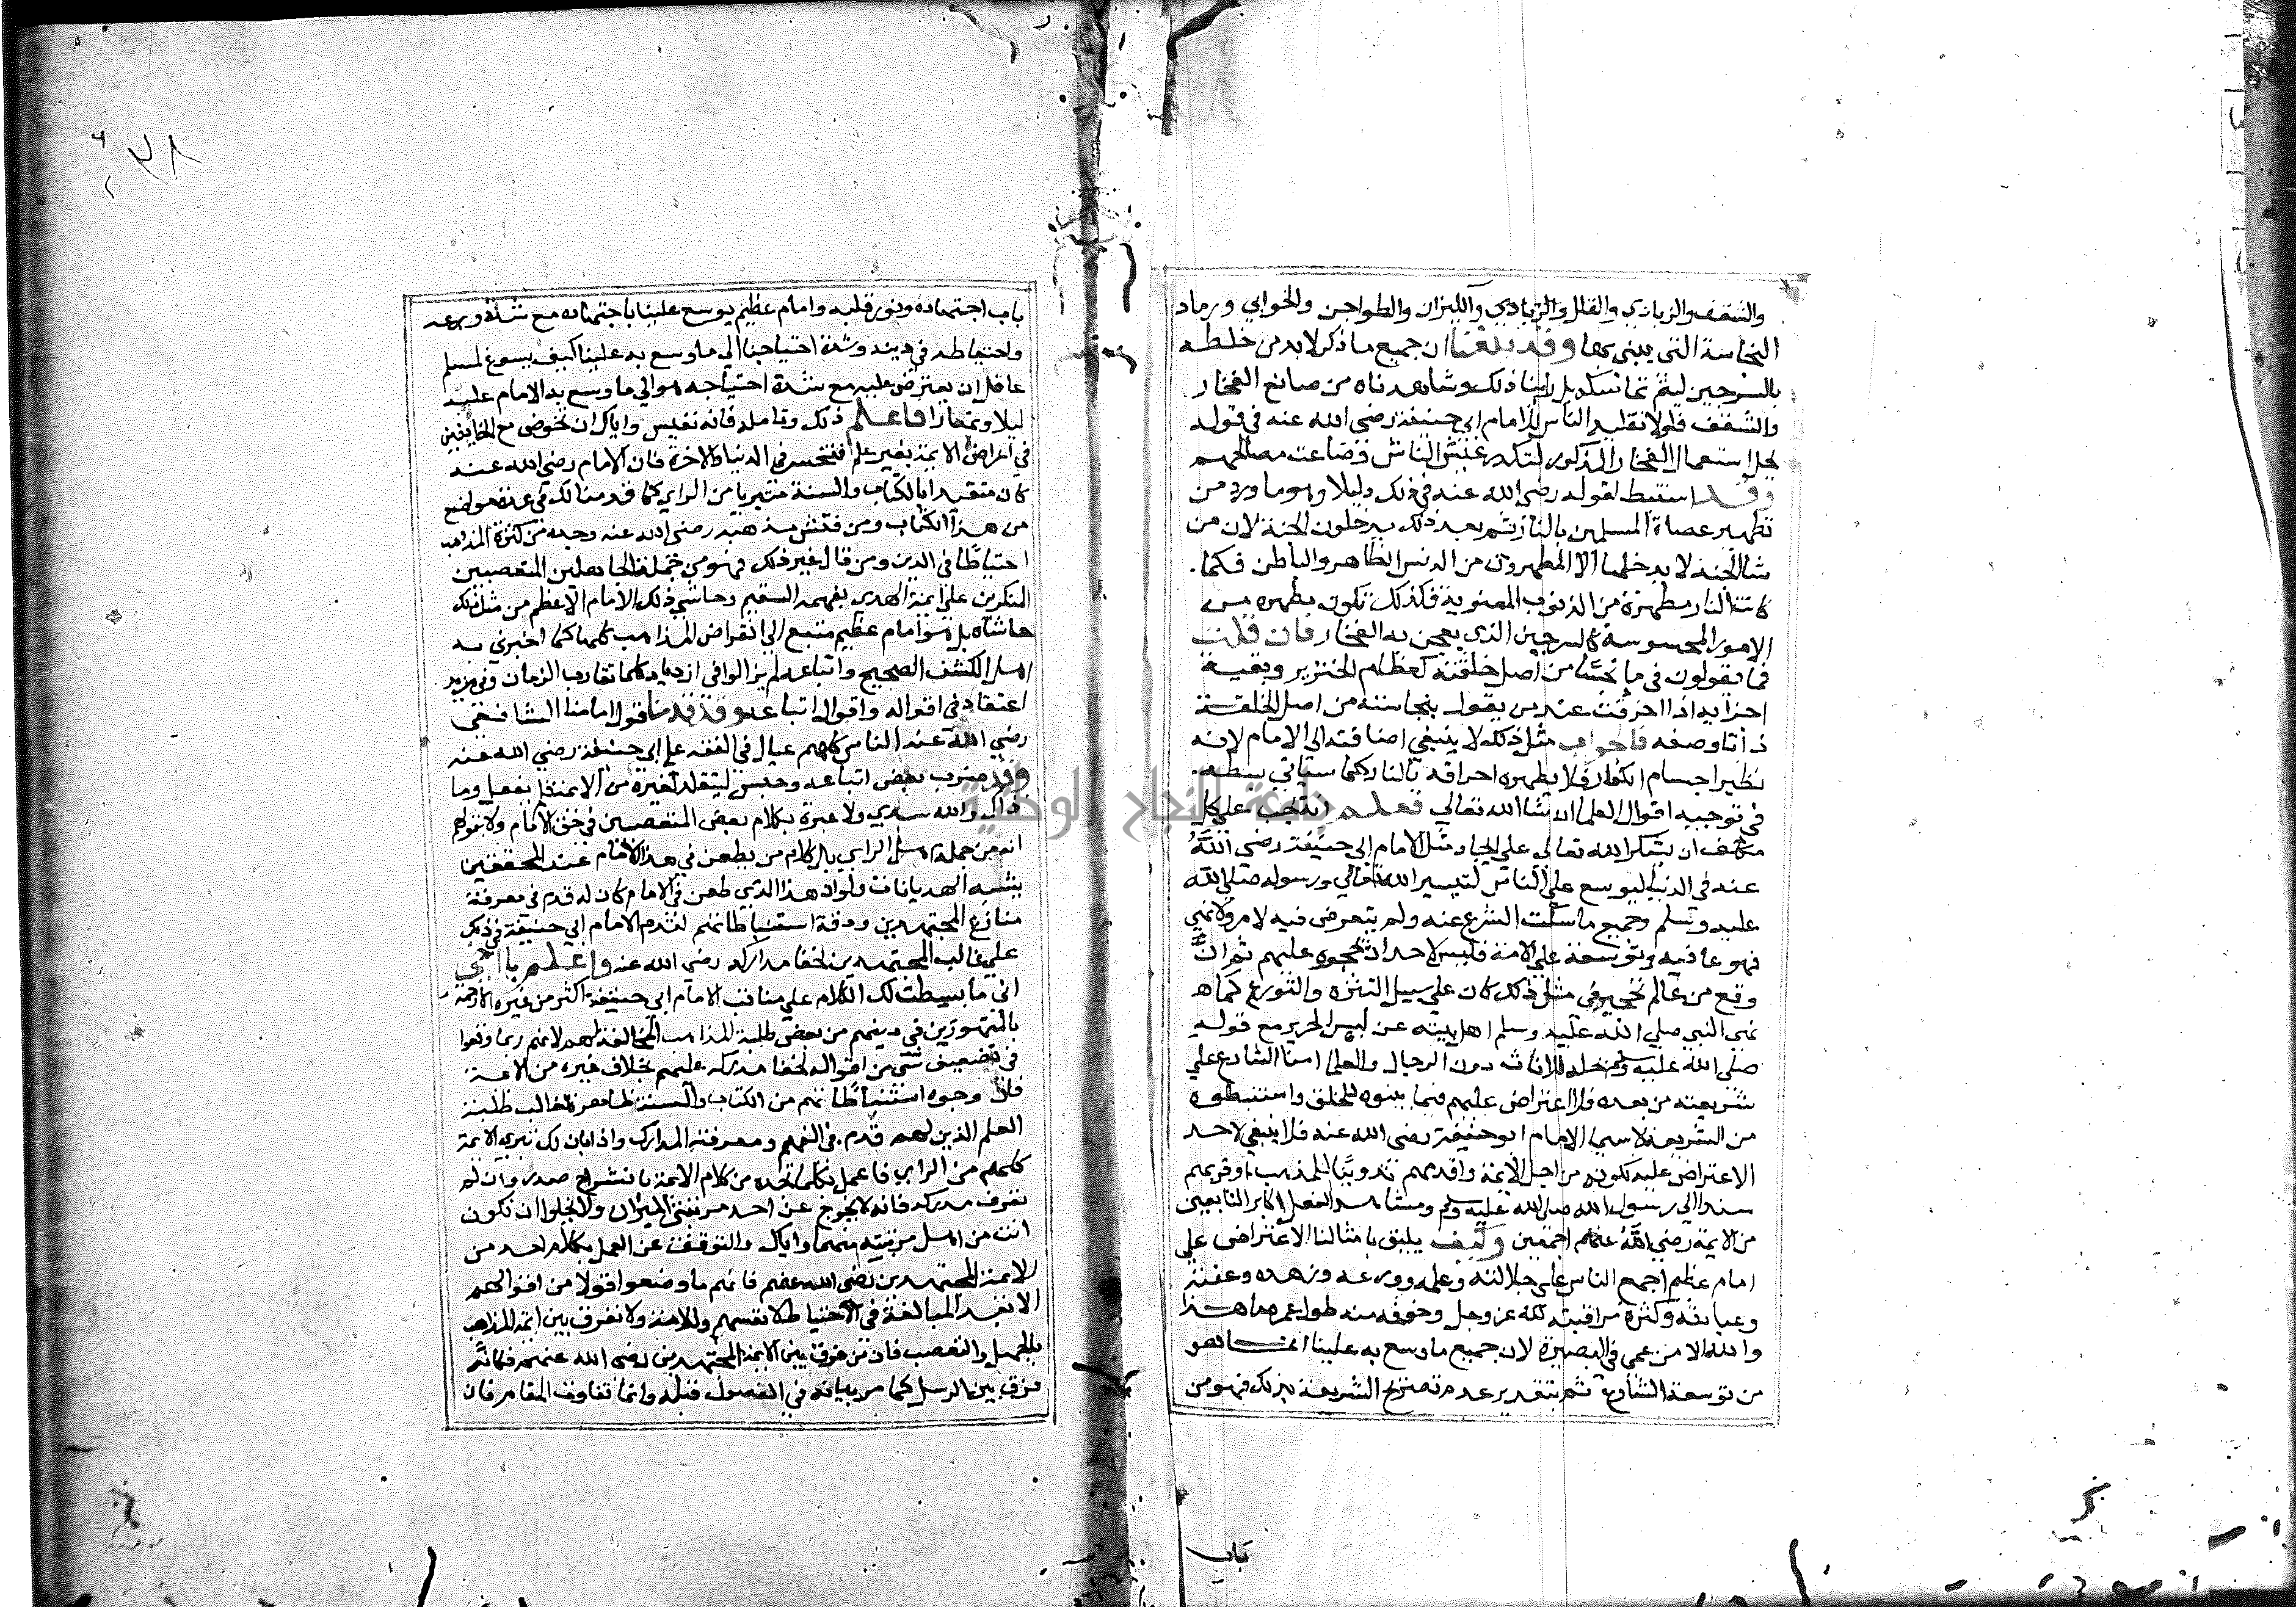 والشقف والزبادي والقلل والزبادي والكيزان والطواجن والخوابي ورماد
النجاسة التي يبني بها وقد بلغنا ان جميع ما ذكر لا بد من خلطه
بالسرجين ليتم تماسكه بل راينا ذلك وشاهدناه من صانع الفخار
والشقف فلولا تقليد الناس للامام ابي حنيفة رضي الله عنه في قوله
بحل استعمال الفخار المذكور لتكدر عيش الناس وضاعت مصالحهم
وقد استنبط لقوله رضي الله عنه في ذلك دليلا وهو ما ورد من
تطهير عصاة المسلمين بالنار ثم بعد ذلك يدخلون الجنة لان من
شان الجنة لا يدخلها الا المطهرون من الدنس الظاهر والباطن فكما
كانت النار مطهرة من الذنوب المعنوية فكذلك تكون مطهرة من
الامور المحسوسة كالسرجين الذي يعجن به الفخار فان قلت
فما تقولون في ما نجسا من اصل خلقته كعظام الخنزير وبقية
اجزايه اذا احرقت عند من يقول بنجاسته من اصل الخلقة
ذاتا وصفه فالجواب مثل ذلك لا ينبغي اضافته الي الامام لانه
نظير اجسام الكفار فلا يطهره احراقه بالنار كما سياتي بسطه
في توجيه اقوال العلما ان شا الله تعالي فعلم انه يجب علي كل
مكلف ان يشكر الله تعالي علي ايجاد مثل الامام ابي حنيفة رضي الله
عنه في الدنيا ليوسع علي الناس لتيسير الله تعالي ورسوله صلي الله
عليه وسلم وجميع ما سكت الشرع عنه ولم يتعرض فيه لامر ولا نهي
فهو عافية وتوسعة علي الامة فليس لاحد ان يحجره عليهم ثم ان
وقع من عالم تحجير في مثل ذلك كان علي سبيل التنزه والتورع كما
نهي النبي صلي الله عليه وسلم اهل بيته عن لبس الحرير مع قوله
صلي الله عليه وسلم بحله للاناث دون الرجال والعلما امنا الشارع علي
شريعته من بعده فلا اعتراض عليهم فيما بينوه للخلق واستنبطوه
من الشريعة لا سيما الامام ابو حنيفة رضي الله عنه فلا ينبغي لاحد
الاعتراض عليه لكونه من اجل الايمة واقدمهم تدوينا للمذهب واقربهم
سندا الي رسول الله صلي الله عليه وسلم ومشاهد الفعل اكابر التابعين
من الايمة رضي الله عنهم اجمعين وكيف يليق بامثالنا الاعتراض علي
امام عظيم اجمع الناس علي جلالته وعلمه وورعه وزهده وعفته
وعبادته وكثرة مراقبته لله عز وجل وخوفه منه طول عمره ما هذا
والله الا من عمي في البصيرة لان جميع ما وسع به علينا انما هو
من توسعة الشارع ثم بتقدير عدم تصريح الشريعة بذلك فهو من
باب
باب اجتهاده ونور قلبه وامام عظيم يوسع علينا باجتهاده مع شدة ورعه
واحتياطه في دينه وشدة احتياجنا الي ما وسع به علينا كيف يسوغ لمسلم
عاقل ان يعترض عليه مع شدة احتياجه هو الي ما وسع به الامام عليه
ليلا ونهارا فاعلم ذلك وتامله فانه نفيس واياك ان تخوض مع الخايضين
في اعراض الايمة بغير علم فتخسر في الدنيا والاخرة فان الامام رضي الله عنه
كان متقيدا بالكتاب والسنة متبريا من الراي كما قدمنا لك في عدة مواضع
من هذا الكتاب ومن فتش مذهبه رضي الله عنه وجده من اكثر المذاهب
احتياطا في الدين ومن قال غير ذلك فهو من جملة الجاهلين المتعصبين
المنكرين علي ايمة الهدي بفهمه السقيم وحاشي ذلك الامام الاعظم من مثل ذلك
حاشاه بل هو امام عظيم متبع الي انقراض المذاهب كلها كما اخبرني به
اهل الكشف الصحيح واتباعه لم يزالوا في ازدياد كلما تقارب الزمان وفي مزيد
اعتقاد في اقواله واقوال اتباعه وقد قدمنا قول امامنا الشافعي
رضي الله عنه الناس كلهم عيال في الفقه علي ابي حنيفة رضي الله عنه
وقد ضرب بعض اتباعه وحبس ليقلد غيره من الايمة فلم يفعل وما
ذاك والله سدي ولا عبرة بكلام بعض المتعصبين في حق الامام ولا بقولهم
انه من جملة اهل الراي بل كلام من يطعن في هذا الامام عند المحققين
يشبه الهذيانات ولو ان هذا الذي طعن في الامام كان له قدم في معرفة
منازع المجتهدين ودقة استنباطاتهم لقدم الامام ابي حنيفة في ذلك
علي غالب المجتهدين لخفا مداركه رضي الله عنه واعلم يا اخي
اني ما بسطت لك الكلام علي مناقب الامام ابي حنيفة اكثر من غيره الا رحمة
بالمتهورين في دينهم من بعض طلبة المذاهب المخالفة لهم لانهم ربما وقعوا
في تضعيف شي من اقواله لخفا مدركه عليهم بخلاف غيره من الايمة
فان وجوه استنباطاتهم من الكتاب والسنة ظاهرة لغالب طلبة
العلم الذين لهم قدم في الفهم ومعرفة المدارك واذا بان لك تبري الايمة
كلهم من الراي فاعمل بكل ما تجده من كلام الايمة بانشراح صدر وان لم
تعرف مدركه فانه لا يخرج عن احد مرتبتي الميزان ولا يخلوا ان تكون
انت من اهل مرتبة منهما واياك والتوقف عن العمل بكلام احد من
الايمة المجتهدين رضي الله عنهم فانهم ما وضعوا قولا من اقوالهم
الا بعد المبالغة في الاحتياط لانفسهم وللامة ولا تفرق بين ايمة المذاهب
بالجهل والتعصب فان من فرق بين الايمة المجتهدين رضي الله عنهم فكانه
فرق بين الرسل كما مر بيانه في الفصول قبله وانما تفاوت المقام فان